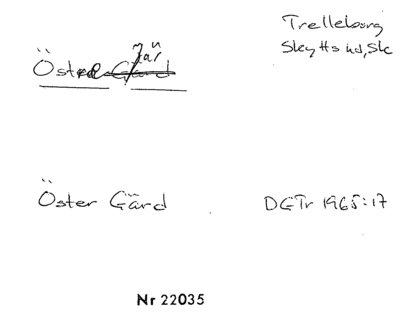 Trelleborg
Skytts hd, Sk
Östra
Öster Gärd
DGTr 1965:17
Nr 22035